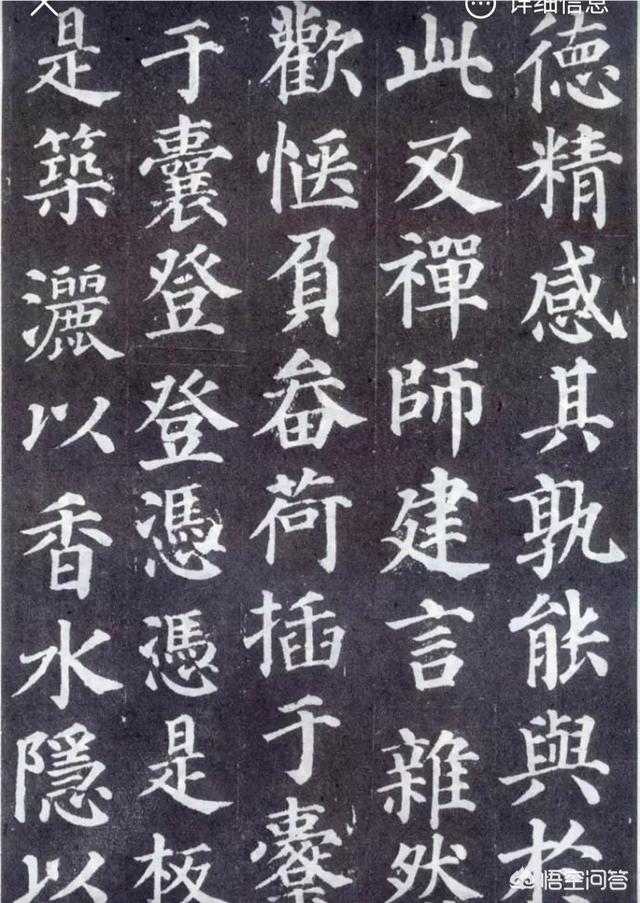 详细信息
德精感其孰能與於
此及禪師建言雜然
歡愜負畚荷插于橐
于囊登登憑憑是板
是築灑以香水隱以
悟空问答